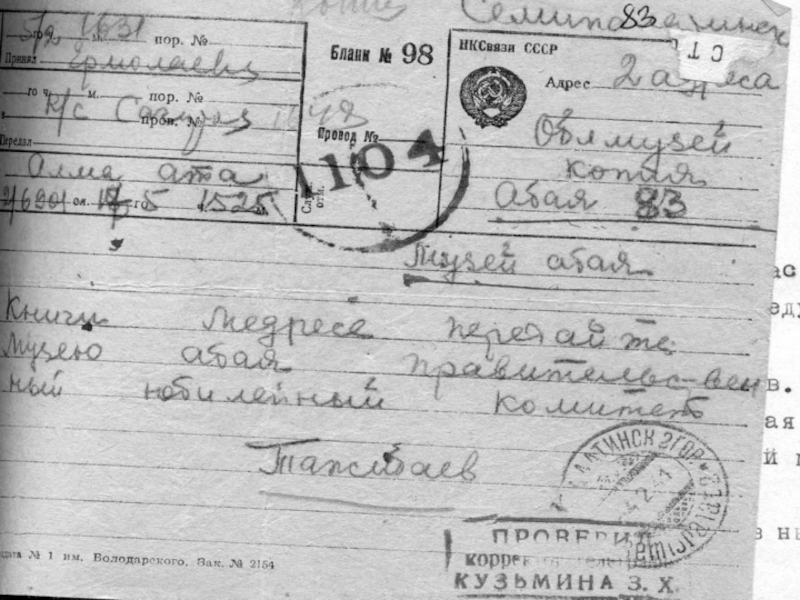 Копия Семипалатинск
83
5/2 1631 пор. №
Принял Ермолаева
го ч. м. пор. №
К/С пров. №
Передал
Алма ата
2/6201 сл. го 5 1525
Бланк № 98
Провод №
Служ. отм.
1104
НКСвязи СССР
Адрес 2 адреса
СТ
Облмузей
копия
Абая 83
Музей абая
Книги медресе передайте
музею абая правительствен
ный юбилейный комитет
Тажибаев
ЛАТИНСК 2 ГОР
4.2.41
ПРОВЕРИЛ
КУЗЬМИНА З. Х.
№ 1 им. Володарского. Зак. № 2154
ас
еду
в.
ая
й
в